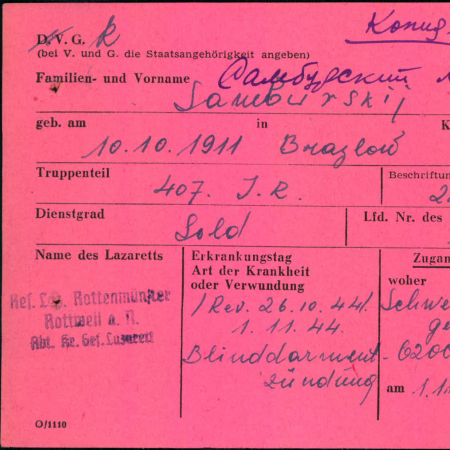 D. V. G. K Копия
(bei V. und G. die Staatsangehörigkeit angeben)
Familien- und Vorname Самбурский
Samburskij
geb. am 10.10.1911 in Brazlow K
Truppenteil 407. I. R. Beschriftun
Dienstgrad Sold Lfd. Nr. des
Name des Lazaretts
Ref. Laz. Rottenmünster
Rottweil a. N.
Abt. Kr. Gef. Lazarett
Erkrankungstag
Art der Krankheit
oder Verwundung
/Rev. 26.10.44/
1.11.44.
Blinddarment-
zündung
Zugan
woher
Schwe
ge
am 1.1
O/1110